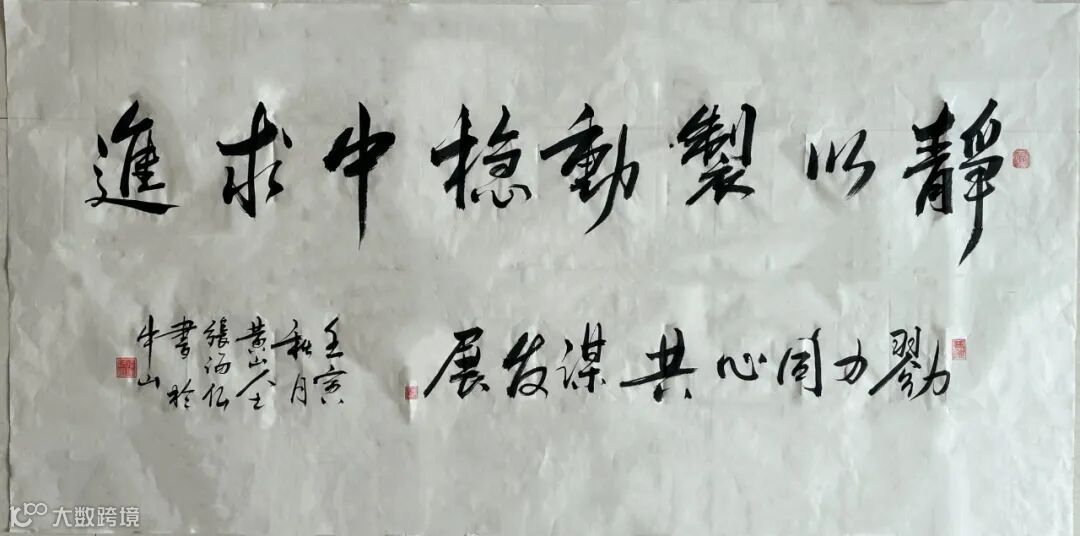 靜以製動稳中求進
勠力同心共谋发展
壬寅
秋月
黄山人士
張
書於
牛山
大数跨境